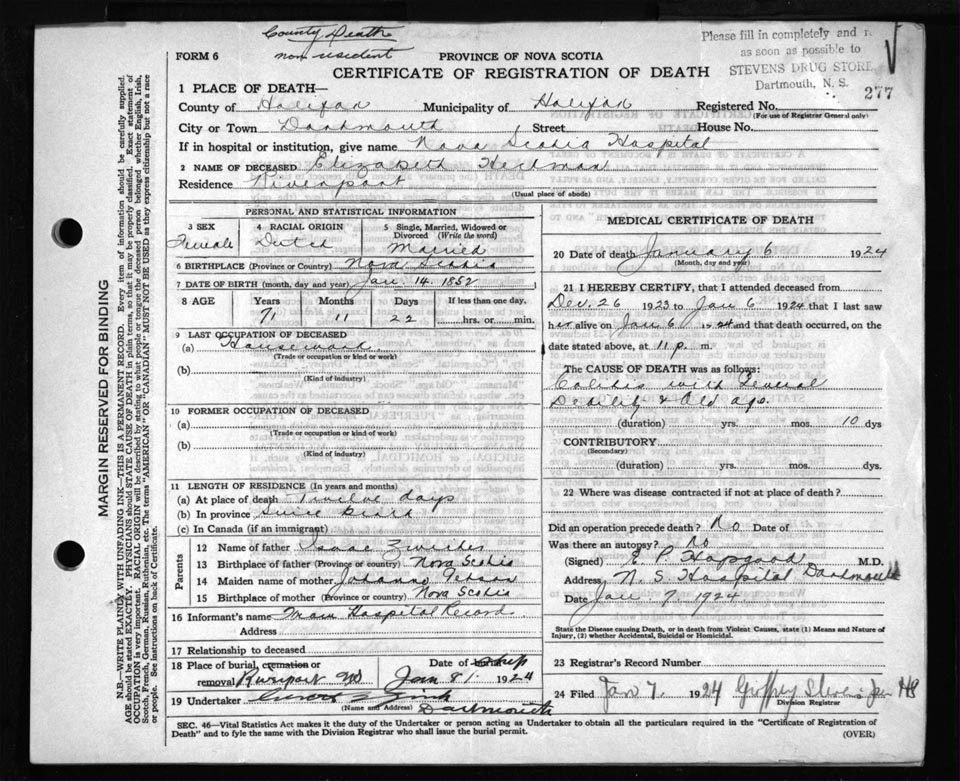 County Death
non resident
Please fill in completely and
as soon as possible to
STEVENS DRUG STORE
Dartmouth, N. S.
277
FORM 6
PROVINCE OF NOVA SCOTIA
CERTIFICATE OF REGISTRATION OF DEATH
1 PLACE OF DEATH—
County of Halifax Municipality of Halifax Registered No.
(For use of Registrar General only)
City or Town Dartmouth Street House No.
If in hospital or institution, give name Nova Scotia Hospital
2 NAME OF DECEASED Elizabeth
Residence Riverport
(Usual place of abode)
PERSONAL AND STATISTICAL INFORMATION
3 SEX 4 RACIAL ORIGIN 5 Single, Married, Widowed or Divorced (Write the word)
Female Dutch Married
6 BIRTHPLACE (Province or Country) Nova Scotia
7 DATE OF BIRTH (month, day and year) Jan. 14. 1852
8 AGE Years Months Days If less than one day,
71 11 22 hrs. or min.
9 LAST OCCUPATION OF DECEASED
(a) Housework
(Trade or occupation or kind or work)
(b)
(Kind of industry)
10 FORMER OCCUPATION OF DECEASED
(a)
(Trade or occupation or kind of work)
(b)
(Kind of industry)
11 LENGTH OF RESIDENCE (In years and months)
(a) At place of death Twelve days
(b) In province Since birth
(c) In Canada (if an immigrant)
Parents
12 Name of father Isaac
13 Birthplace of father (Province or Country) Nova Scotia
14 Maiden name of mother
15 Birthplace of mother (Province or Country) Nova Scotia
16 Informant's name From Hospital Record
Address
17 Relationship to deceased
18 Place of burial, cremation or removal Riverport NS Date of Ship Jan 8 1924
19 Undertaker
(Name and Address) Dartmouth
MEDICAL CERTIFICATE OF DEATH
20 Date of death January 6 1924
(Month, day and year)
21 I HEREBY CERTIFY, that I attended deceased from
Dec. 26 1923 to Jan 6 1924 that I last saw
her alive on Jan 6 1924 and that death occurred, on the
date stated above, at 11 p. m.
The CAUSE OF DEATH was as follows:
Colitis with General
Debility & Old age.
(duration) yrs. mos. 10 dys
CONTRIBUTORY
(Secondary)
(duration) yrs. mos. dys.
22 Where was disease contracted if not at place of death?
Did an operation precede death? No Date of
Was there an autopsy? No
(Signed) E. P. Hopgood M.D.
Address N. S. Hospital Dartmouth
Date Jan. 7. 1924
State the Disease causing Death, or in death from Violent Causes, state (1) Means and Nature of Injury, (2) whether Accidental, Suicidal or Homicidal.
23 Registrar's Record Number
24 Filed Jan 7. 1924
Division Registrar
SEC. 46—Vital Statistics Act makes it the duty of the Undertaker or person acting as Undertaker to obtain all the particulars required in the "Certificate of Registration of
Death" and to fyle the same with the Division Registrar who shall issue the burial permit. (OVER)
MARGIN RESERVED FOR BINDING
N.B.—WRITE PLAINLY WITH UNFADING INK—THIS IS A PERMANENT RECORD. Every item of information should be carefully supplied.
AGE should be stated EXACTLY. PHYSICIANS should STATE CAUSE OF DEATH in plain terms, so that it may be properly classified. Exact statement of
OCCUPATION is very important. RACIAL ORIGIN will be described by stating to what people or tongue the deceased person belonged whether English, Irish,
Scotch, French, German, Russian, Ruthenian, etc. The terms "AMERICAN" OR "CANADIAN" MUST NOT BE USED as they express citizenship but not a race
or people. See instructions on back of Certificate.